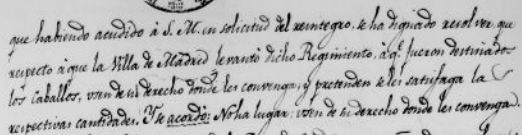 que habiendo acudido à S. M. en solicitud del reintegro, se ha dignado resolver, que
respecto à que la Villa de Madrid levantó dicho Regimiento, à q.e fueron destinados
los Caballos, usen de su derecho donde les convenga, y pretenden se les satisfaga la
respectivas cantidades. Y se acordó: No ha lugar: usen de su derecho donde les convenga.